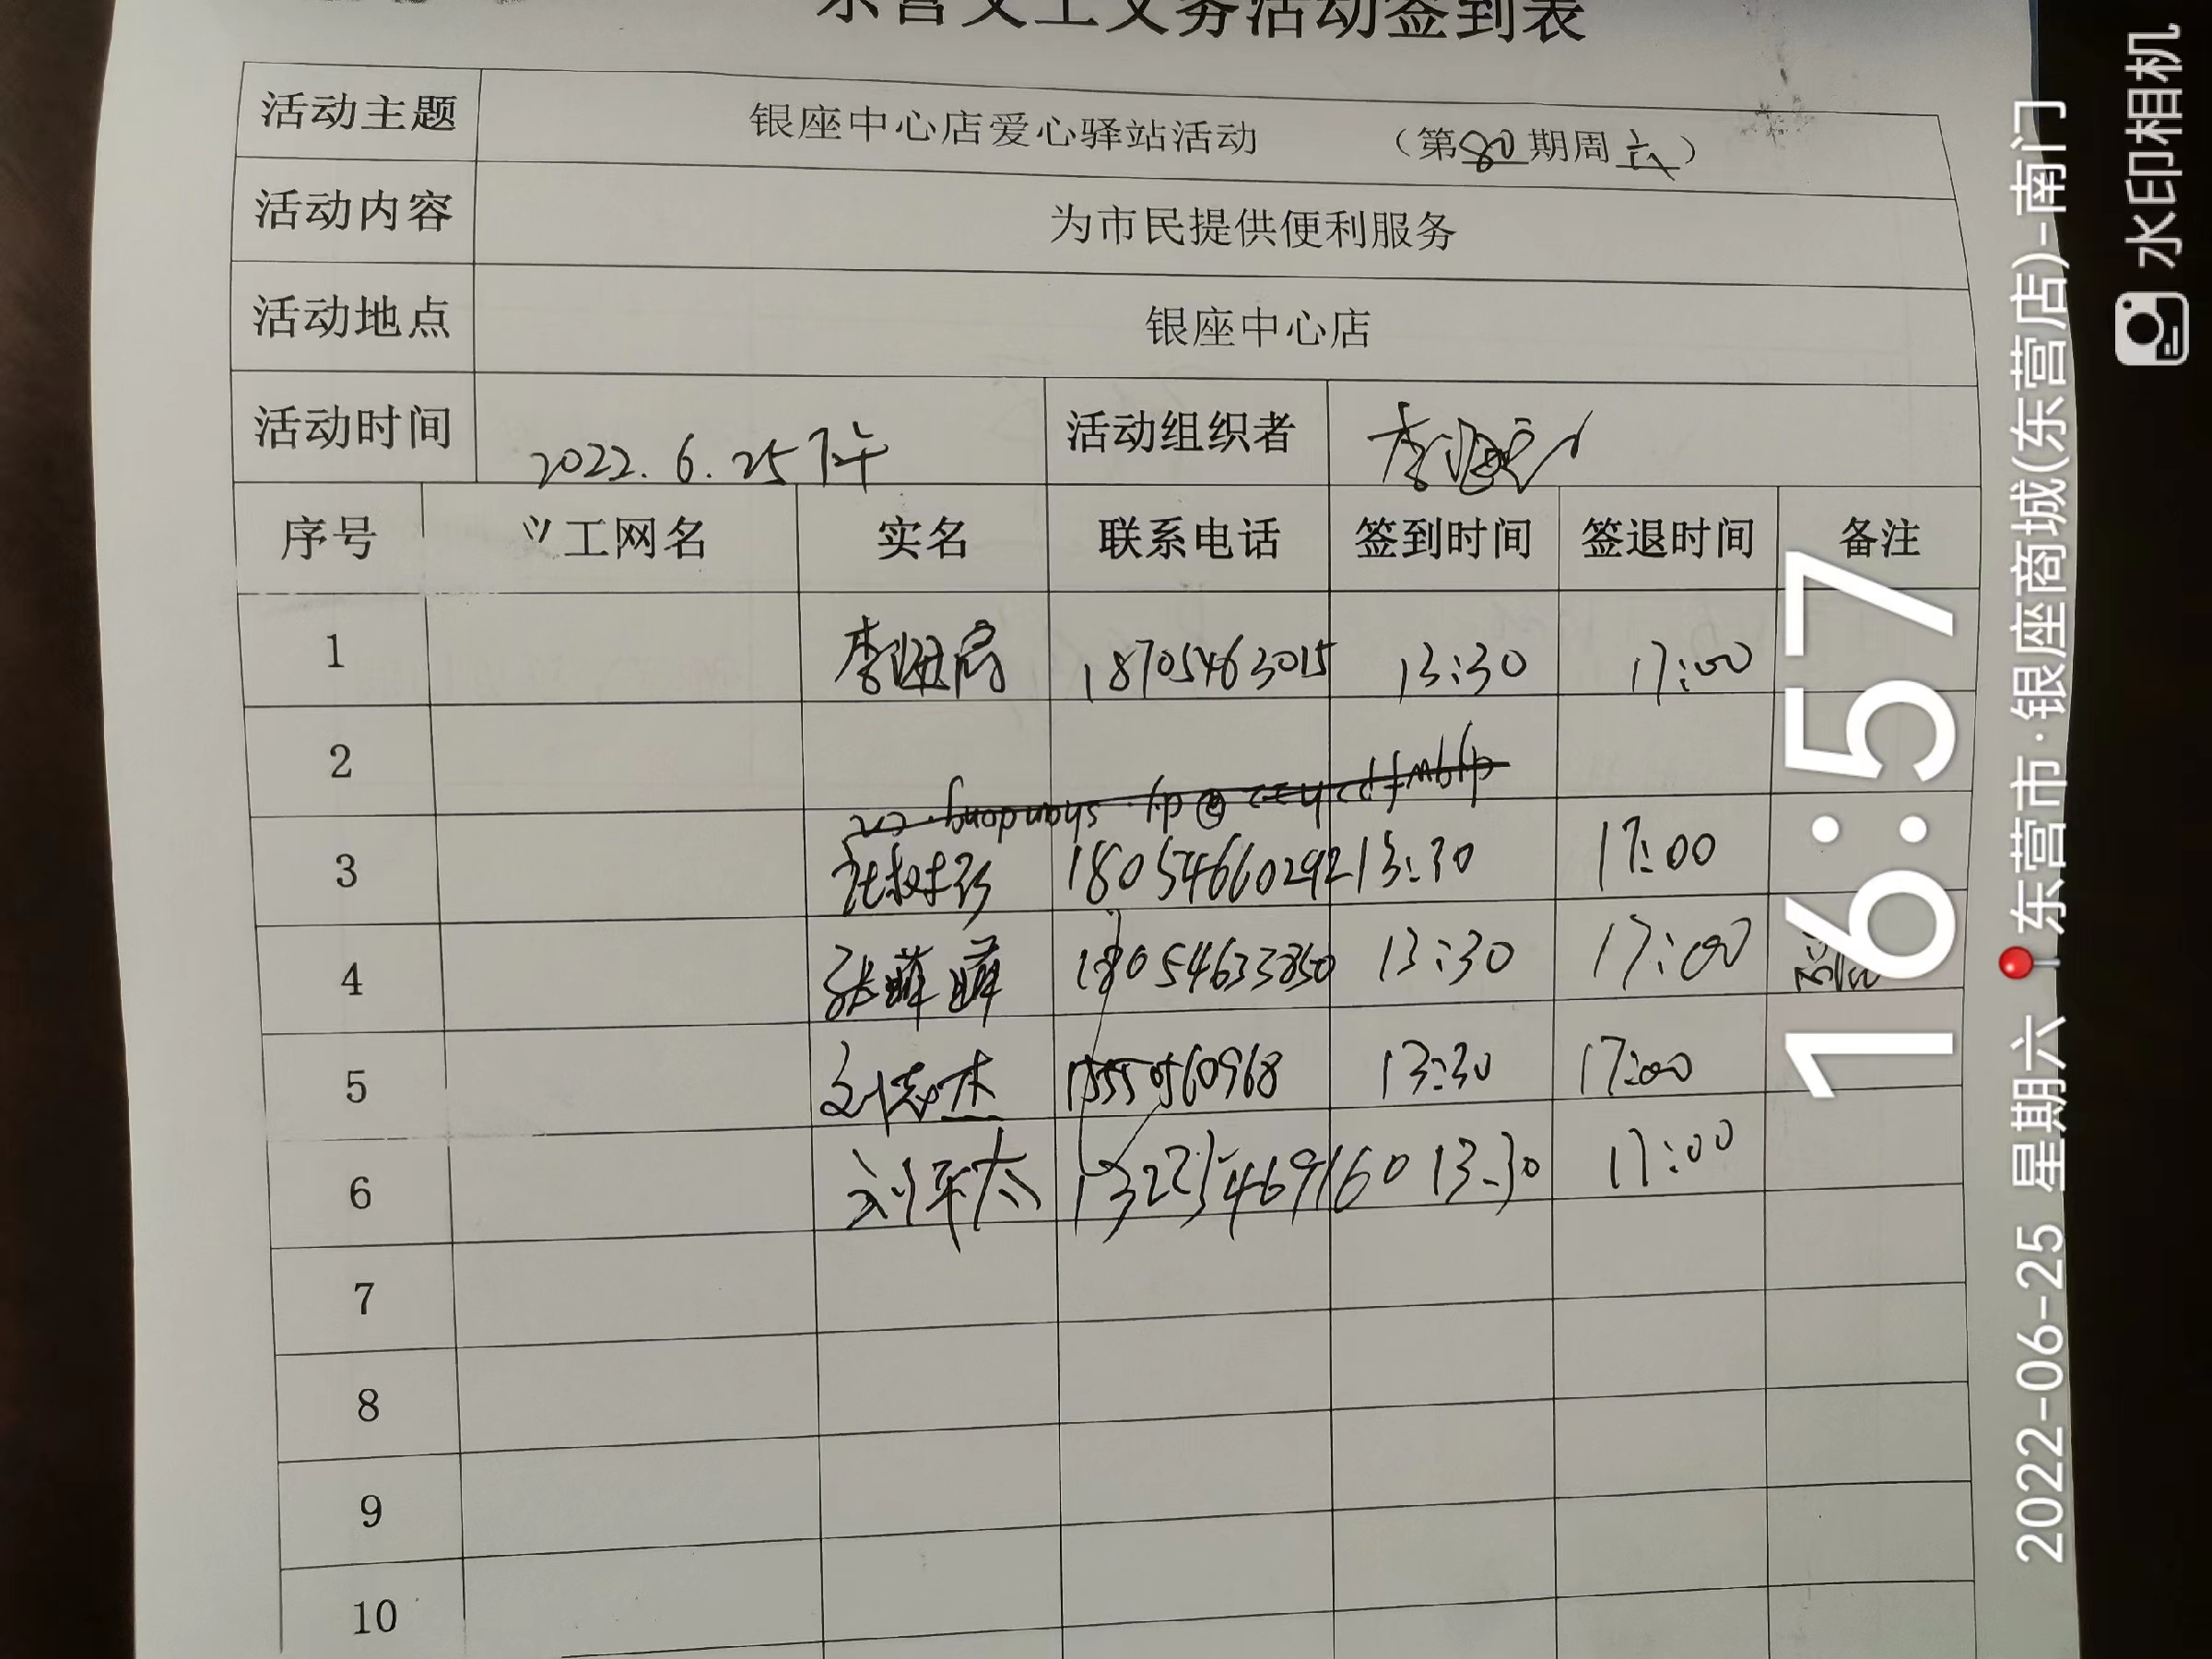 东营义工义务活动签到表
活动主题 银座中心店爱心驿站活动 （第80期周六）
活动内容 为市民提供便利服务
活动地点 银座中心店
活动时间 2022.6.25下午 活动组织者
序号 义工网名 实名 联系电话 签到时间 签退时间 备注
1 18705463015 13:30 17:00
2
3 18054660292 13:30 17:00
4 张萍萍 18054633850 13:30 17:00
5 刘志杰 13:30 17:00
6 13225469160 13:30 17:00
7
8
9
10
水印相机
16:57
2022-06-25 星期六 东营市·银座商城(东营店)-南门